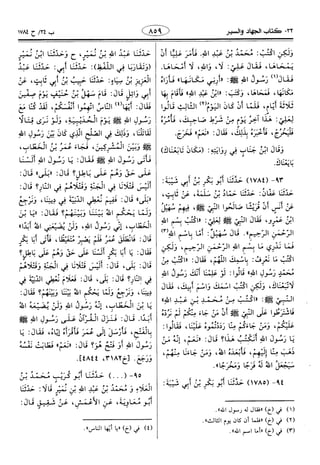 ٢٢- كتاب الجهاد والسير
٨٥٩
ب ٣٤/ ح ١٧٨٤
وَلَكِنِ اكْتُبْ: مُحَمَّدُ بْنُ عَبْدِ اللهِ. فَأَمَرَ عَلِيًّا أَنْ
يَمْحَاهَا. فَقَالَ عَلِيٌّ: لَا، وَاللهِ، لَا أَمْحَاهَا.
فَقَالَ رَسُولُ اللهِ ﷺ: «أَرِنِي مَكَانَهَا» فَأَرَاهُ
مَكَانَهَا، فَمَحَاهَا، وَكَتَبَ: «ابْنُ عَبْدِ اللهِ» فَأَقَامَ بِهَا
ثَلَاثَةَ أَيَّامٍ. فَلَمَّا أَنْ كَانَ الْيَوْمُ الثَّالِثُ قَالُوا
لِعَلِيٍّ: هَذَا آخِرُ يَوْمٍ مِنْ شَرْطِ صَاحِبِكَ، فَأْمُرْهُ
فَلْيَخْرُجْ، فَأَخْبَرَهُ بِذَلِكَ، فَقَالَ: «نَعَمْ» فَخَرَجَ.
وَقَالَ ابْنُ جَنَابٍ فِي رِوَايَتِهِ: (مَكَانَ تَابَعْنَاكَ)
بَايَعْنَاكَ.
٩٣- (١٧٨٤) حَدَّثَنَا أَبُو بَكْرِ بْنُ أَبِي شَيْبَةَ:
حَدَّثَنَا عَفَّانُ: حَدَّثَنَا حَمَّادُ بْنُ سَلَمَةَ، عَنْ ثَابِتٍ،
عَنْ أَنَسٍ أَنَّ قُرَيْشًا صَالَحُوا النَّبِيَّ ﷺ، فِيهِمْ سُهَيْلُ
ابْنُ عَمْرٍو، فَقَالَ النَّبِيُّ ﷺ لِعَلِيٍّ: «اكْتُبْ بِسْمِ اللهِ
الرَّحْمَنِ الرَّحِيمِ». قَالَ سُهَيْلٌ: أَمَّا بِاسْمِ اللهِ
فَمَا نَدْرِي مَا بِسْمِ اللهِ الرَّحْمَنِ الرَّحِيمِ، وَلَكِنِ
اكْتُبْ مَا نَعْرِفُ: بِاسْمِكَ اللَّهُمَّ. فَقَالَ: «اكْتُبْ مِنْ
مُحَمَّدٍ رَسُولِ اللهِ» قَالُوا: لَوْ عَلِمْنَا أَنَّكَ رَسُولُ اللهِ
لَاتَّبَعْنَاكَ، وَلَكِنِ اكْتُبِ اسْمَكَ وَاسْمَ أَبِيكَ، فَقَالَ
النَّبِيُّ ﷺ: «اكْتُبْ مِنْ مُحَمَّدِ بْنِ عَبْدِ اللهِ»
فَاشْتَرَطُوا عَلَى النَّبِيِّ ﷺ أَنْ مَنْ جَاءَ مِنْكُمْ لَمْ نَرُدَّهُ
عَلَيْكُمْ، وَمَنْ جَاءَكُمْ مِنَّا رَدَدْتُمُوهُ عَلَيْنَا، فَقَالُوا:
يَا رَسُولَ اللهِ أَنَكْتُبُ هَذَا؟ قَالَ: «نَعَمْ، إِنَّهُ مَنْ
ذَهَبَ مِنَّا إِلَيْهِمْ، فَأَبْعَدَهُ اللهُ، وَمَنْ جَاءَنَا مِنْهُمْ،
سَيَجْعَلُ اللهُ لَهُ فَرَجًا وَمَخْرَجًا».
٩٤- (١٧٨٥) حَدَّثَنَا أَبُو بَكْرِ بْنُ أَبِي شَيْبَةَ:
حَدَّثَنَا عَبْدُ اللهِ بْنُ نُمَيْرٍ، ح وَحَدَّثَنَا ابْنُ نُمَيْرٍ
(وَتَقَارَبَا فِي اللَّفْظِ): حَدَّثَنَا أَبِي: حَدَّثَنَا عَبْدُ
الْعَزِيزِ بْنُ سِيَاهٍ: حَدَّثَنَا حَبِيبُ بْنُ أَبِي ثَابِتٍ، عَنْ
أَبِي وَائِلٍ قَالَ: قَامَ سَهْلُ بْنُ حُنَيْفٍ يَوْمَ صِفِّينَ
فَقَالَ: أَيُّهَا النَّاسُ اتَّهِمُوا أَنْفُسَكُمْ، لَقَدْ كُنَّا مَعَ
رَسُولِ اللهِ ﷺ يَوْمَ الْحُدَيْبِيَةِ، وَلَوْ نَرَى قِتَالًا
لَقَاتَلْنَا، وَذَلِكَ فِي الصُّلْحِ الَّذِي كَانَ بَيْنَ رَسُولِ اللهِ
ﷺ وَبَيْنَ الْمُشْرِكِينَ، فَجَاءَ عُمَرُ بْنُ الْخَطَّابِ،
فَأَتَى رَسُولَ اللهِ ﷺ فَقَالَ: يَا رَسُولَ اللهِ أَلَسْنَا
عَلَى حَقٍّ وَهُمْ عَلَى بَاطِلٍ؟ قَالَ: «بَلَى» قَالَ:
أَلَيْسَ قَتْلَانَا فِي الْجَنَّةِ وَقَتْلَاهُمْ فِي النَّارِ؟ قَالَ:
«بَلَى» قَالَ: فَفِيمَ نُعْطِي الدَّنِيَّةَ فِي دِينِنَا، وَنَرْجِعُ
وَلَمَّا يَحْكُمِ اللهُ بَيْنَنَا وَبَيْنَهُمْ؟ فَقَالَ: «يَا ابْنَ
الْخَطَّابِ، إِنِّي رَسُولُ اللهِ، وَلَنْ يُضَيِّعَنِي اللهُ أَبَدًا»
قَالَ: فَانْطَلَقَ عُمَرُ فَلَمْ يَصْبِرْ مُتَغَيِّظًا، فَأَتَى أَبَا بَكْرٍ
فَقَالَ: يَا أَبَا بَكْرٍ أَلَسْنَا عَلَى حَقٍّ وَهُمْ عَلَى بَاطِلٍ؟
قَالَ: بَلَى، قَالَ: أَلَيْسَ قَتْلَانَا فِي الْجَنَّةِ وَقَتْلَاهُمْ
فِي النَّارِ؟ قَالَ: بَلَى، قَالَ: فَعَلَامَ نُعْطِي الدَّنِيَّةَ فِي
دِينِنَا، وَنَرْجِعُ وَلَمَّا يَحْكُمِ اللهُ بَيْنَنَا وَبَيْنَهُمْ؟ فَقَالَ:
يَا ابْنَ الْخَطَّابِ، إِنَّهُ رَسُولُ اللهِ وَلَنْ يُضَيِّعَهُ اللهُ
أَبَدًا. قَالَ: فَنَزَلَ الْقُرْآنُ عَلَى رَسُولِ اللهِ ﷺ
بِالْفَتْحِ، فَأَرْسَلَ إِلَى عُمَرَ فَأَقْرَأَهُ إِيَّاهُ، فَقَالَ: يَا
رَسُولَ اللهِ أَوَ فَتْحٌ هُوَ؟ قَالَ: «نَعَمْ» فَطَابَتْ نَفْسُهُ
وَرَجَعَ. [خ: ٣١٨٢، ٤٨٤٤]
٩٥- (...) حَدَّثَنَا أَبُو كُرَيْبٍ مُحَمَّدُ بْنُ
الْعَلَاءِ وَ مُحَمَّدُ بْنُ عَبْدِ اللهِ بْنِ نُمَيْرٍ قَالَا: حَدَّثَنَا
أَبُو مُعَاوِيَةَ، عَنِ الْأَعْمَشِ، عَنْ شَقِيقٍ قَالَ:
(١) في (خ) «فقال له رسول الله».
(٢) في (خ) «فلما أن كان يوم الثالث».
(٣) في (خ) «أما اسم الله».
(٤) في (خ) «يا أيها الناس».